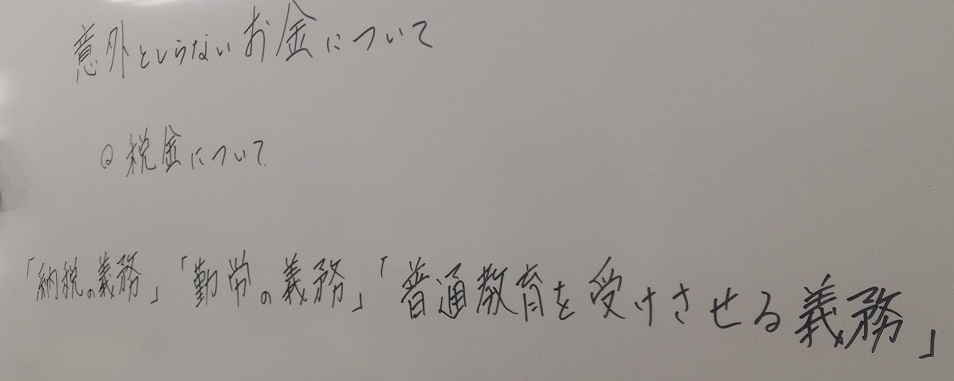 意外としらないお金について
○税金について
「納税の義務」「勤労の義務」「普通教育を受けさせる義務」